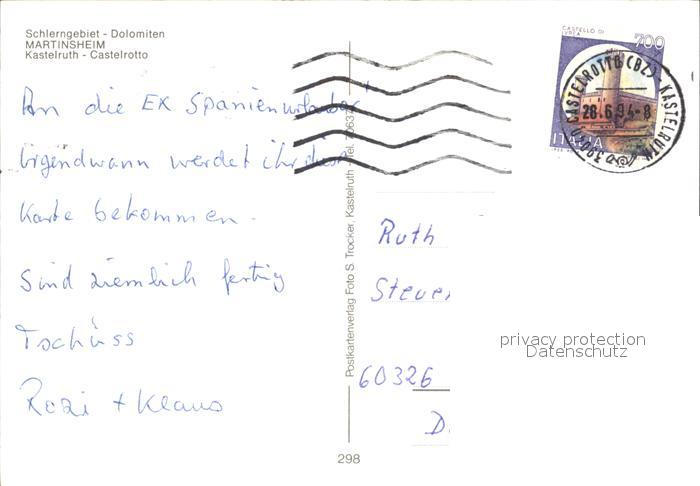 Schlerngebiet - Dolomiten
MARTINSHEIM
Kastelruth - Castelrotto
An die EX Spanienurlauber
Irgendwann werdet ihr diese
Karte bekommen.
Sind ziemlich fertig
Tschüss
Rosi + Klaus
Postkartenverlag Foto S. Trocker, Kastelruth
Tel.
298
CASTELLO DI
IVREA
700
ITALIA
CASTELROTTO (BZ) - KASTELRUTH
28.6.94-8
Ruth
60326
D
privacy protection
Datenschutz